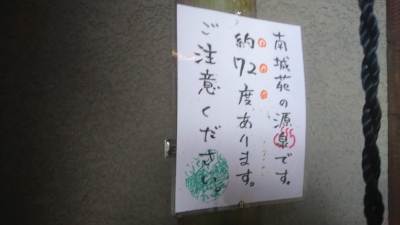 南城苑の源泉です。
約72度あります。
ご注意ください。